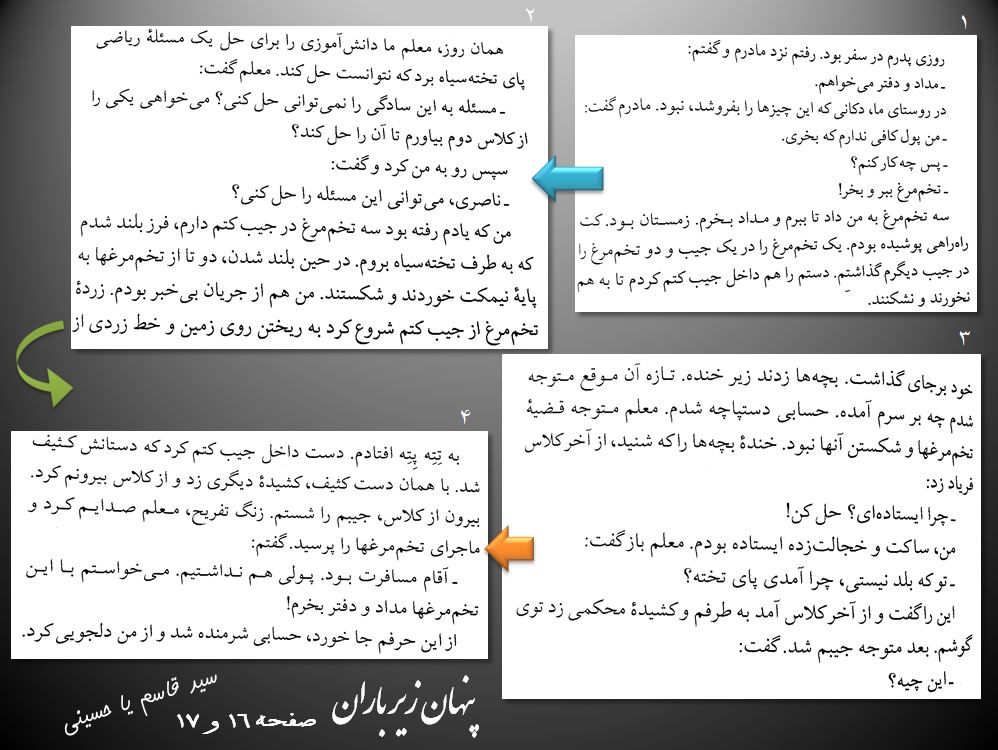 ۱
روزی پدرم در سفر بود. رفتم نزد مادرم و گفتم:
ـ مداد و دفتر می‌خواهم.
در روستای ما، دکانی که این چیزها را بفروشد، نبود. مادرم گفت:
ـ من پول کافی ندارم که بخری.
ـ پس چه کار کنم؟
ـ تخم‌مرغ ببر و بخر!
سه تخم‌مرغ به من داد تا ببرم و مداد بخرم. زمستان بود. کت
راه‌راهی پوشیده بودم. یک تخم‌مرغ را در یک جیب و دو تخم‌مرغ را
در جیب دیگرم گذاشتم. دستم را هم داخل جیب کتم کردم تا به هم
نخورند و نشکنند.
۲
همان روز، معلم ما دانش‌آموزی را برای حل یک مسئلهٔ ریاضی
پای تخته‌سیاه برد که نتوانست حل کند. معلم گفت:
ـ مسئله به این سادگی را نمی‌توانی حل کنی؟ می‌خواهی یکی را
از کلاس دوم بیاورم تا آن را حل کند؟
سپس رو به من کرد و گفت:
ـ ناصری، می‌توانی این مسئله را حل کنی؟
من که یادم رفته بود سه تخم‌مرغ در جیب کتم دارم، فرز بلند شدم
که به طرف تخته‌سیاه بروم. در حین بلند شدن، دو تا از تخم‌مرغها به
پایهٔ نیمکت خوردند و شکستند. من هم از جریان بی‌خبر بودم. زردهٔ
تخم‌مرغ از جیب کتم شروع کرد به ریختن روی زمین و خط زردی از
۳
خود برجای گذاشت. بچه‌ها زدند زیر خنده. تازه آن موقع متوجه
شدم چه بر سرم آمده. حسابی دستپاچه شدم. معلم متوجه قضیهٔ
تخم‌مرغها و شکستن آنها نبود. خندهٔ بچه‌ها را که شنید، از آخر کلاس
فریاد زد:
ـ چرا ایستاده‌ای؟ حل کن!
من، ساکت و خجالت‌زده ایستاده بودم. معلم باز گفت:
ـ تو که بلد نیستی، چرا آمدی پای تخته؟
این را گفت و از آخر کلاس آمد به طرفم و کشیدهٔ محکمی زد توی
گوشم. بعد متوجه جیبم شد. گفت:
ـ این چیه؟
۴
به تِته پِته افتادم. دست داخل جیب کتم کرد که دستانش کثیف
شد. با همان دست کثیف، کشیدهٔ دیگری زد و از کلاس بیرونم کرد.
بیرون از کلاس، جیبم را شستم. زنگ تفریح، معلم صدایم کرد و
ماجرای تخم‌مرغها را پرسید. گفتم:
ـ آقام مسافرت بود. پولی هم نداشتیم. می‌خواستم با این
تخم‌مرغها مداد و دفتر بخرم!
از این حرفم جا خورد، حسابی شرمنده شد و از من دلجویی کرد.
پنهان زیر باران
صفحه ۱۶ و ۱۷
سید قاسم یا حسینی